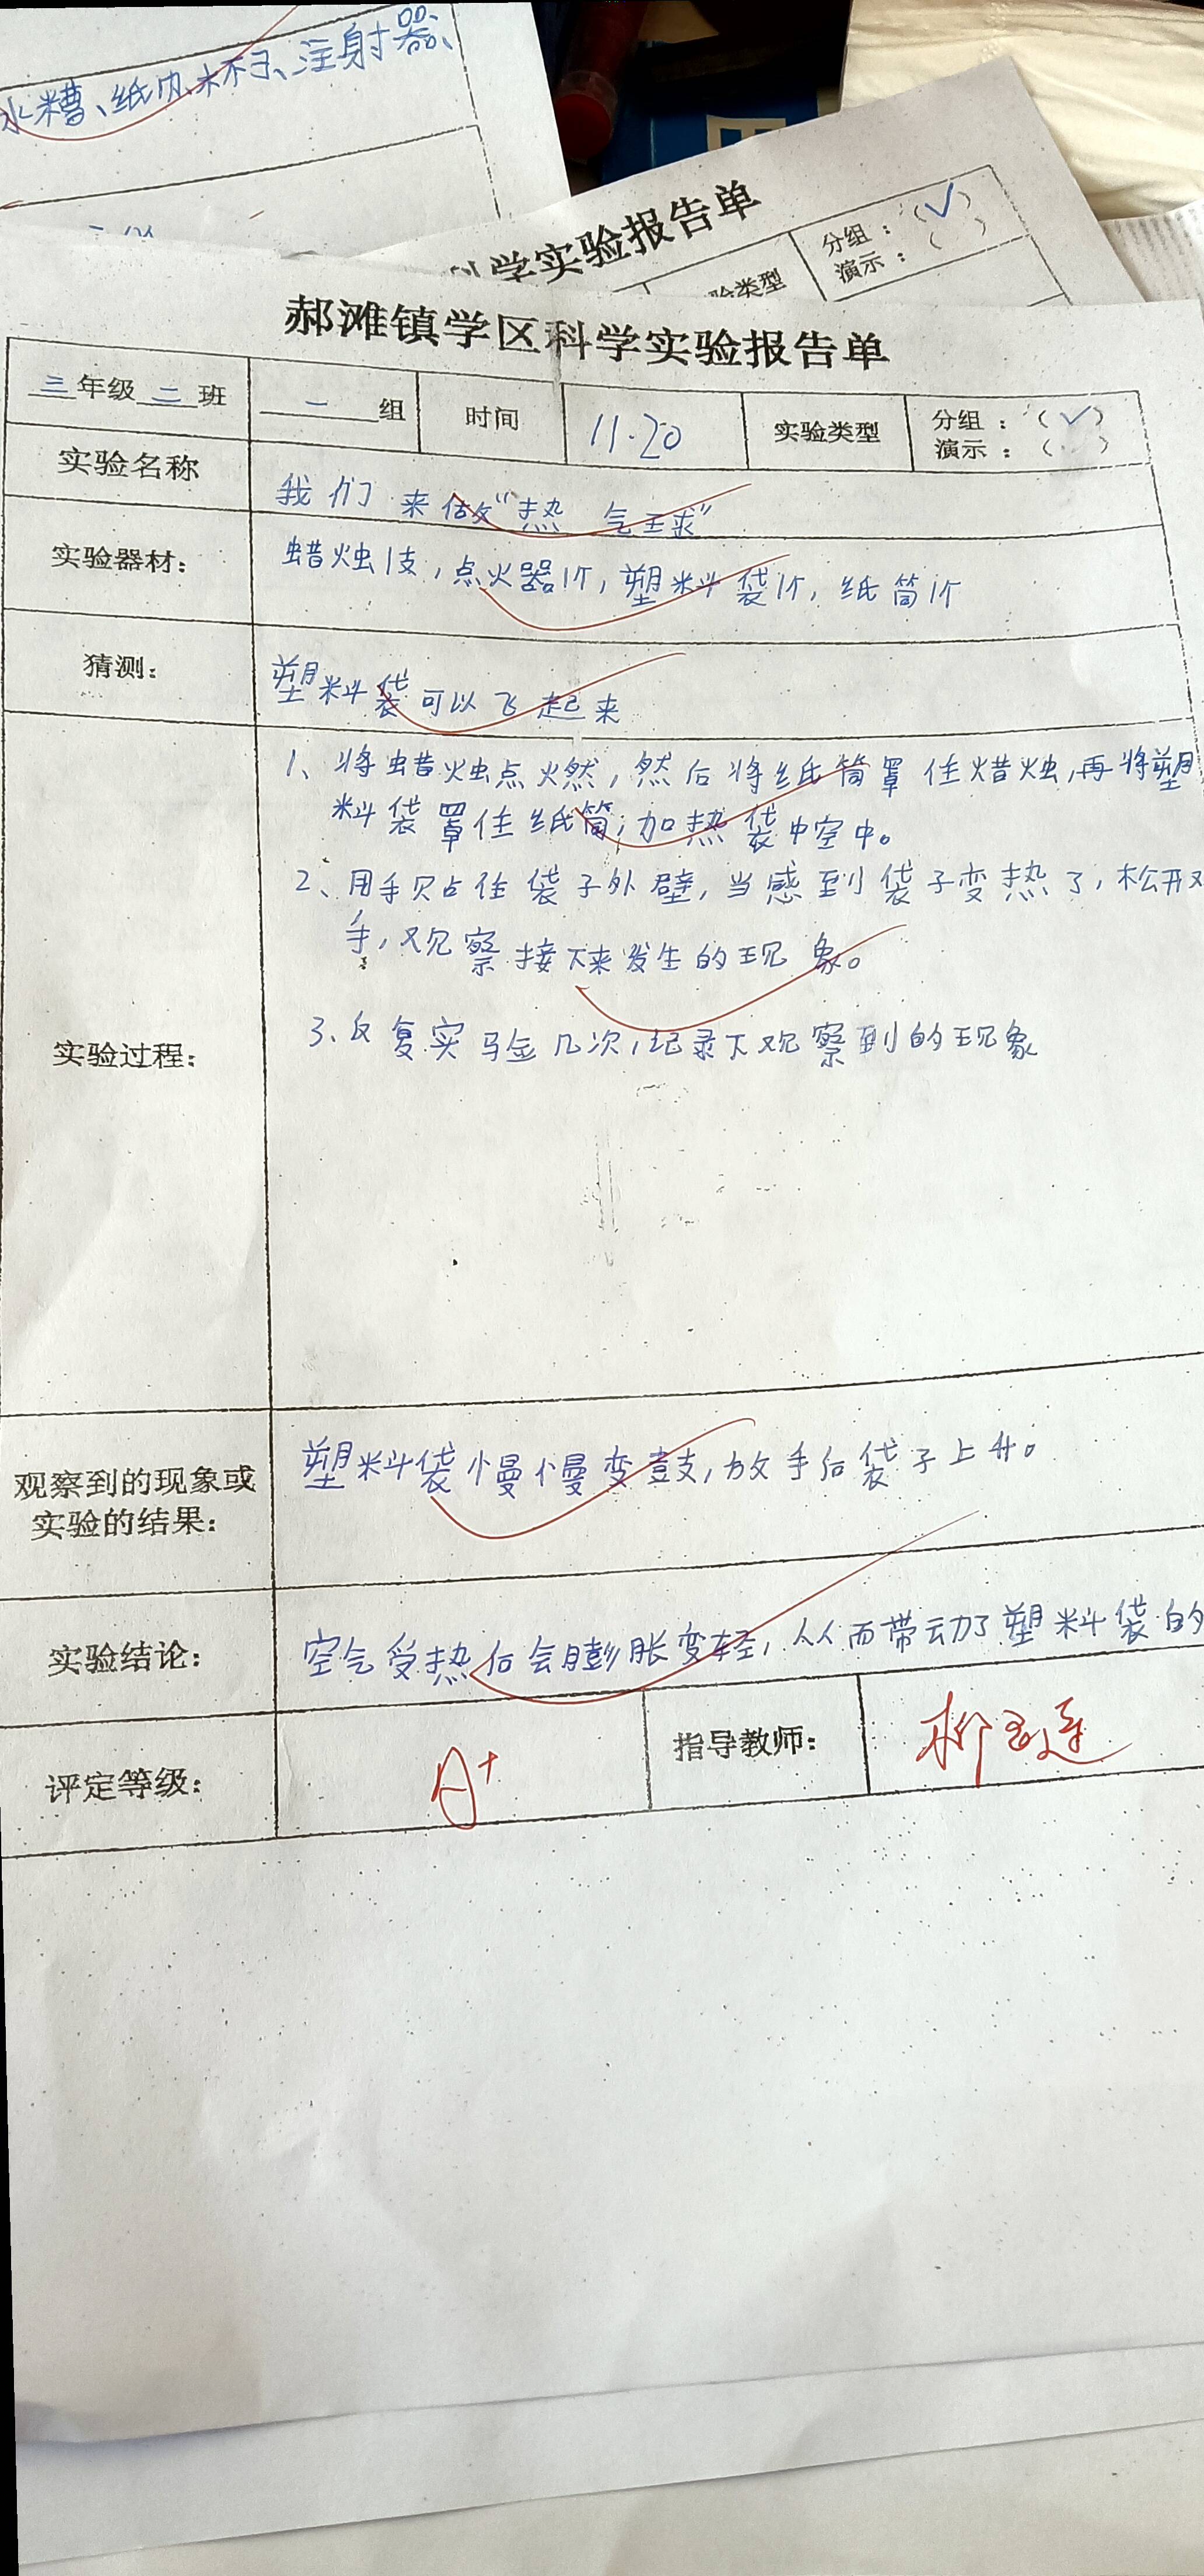 水槽、纸巾、杯子、注射器、
科学实验报告单
实验类型 分组：（✓）
演示：（ ）
郝滩镇学区科学实验报告单
三年级二班 一组 时间 11.20 实验类型 分组：（✓）
演示：（ ）
实验名称 我们来做“热气球”
实验器材： 蜡烛1支，点火器1个，塑料袋1个，纸筒1个
猜测： 塑料袋可以飞起来
实验过程：
1、将蜡烛点燃，然后将纸筒罩住蜡烛，再将塑
料袋罩住纸筒，加热袋中空中。
2、用手贴住袋子外壁，当感到袋子变热了，松开双
手，观察接下来发生的现象。
3、反复实验几次，记录下观察到的现象
观察到的现象或
实验的结果： 塑料袋慢慢变鼓，放手后袋子上升。
实验结论： 空气受热后会膨胀变轻，从而带动了塑料袋的
评定等级： A+ 指导教师： 柳